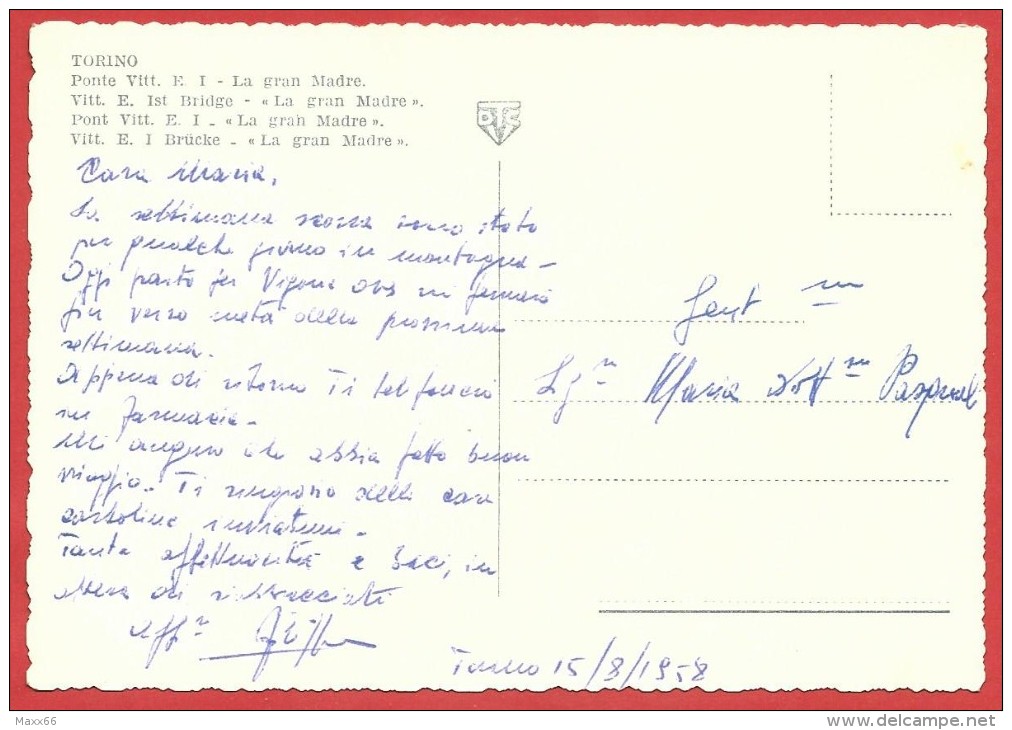 TORINO
Ponte Vitt. E. I - La gran Madre.
Vitt. E. Ist Bridge - « La gran Madre ».
Pont Vitt. E. I - « La gran Madre ».
Vitt. E. I Brücke - « La gran Madre ».
Cara Maria,
La settimana scorsa sono stato
per qualche giorno in montagna -
Oggi parto per Vigone ove mi fermerò
fin verso metà della prossima
settimana.
Appena di ritorno Ti telefonerò
in farmacia -
Mi auguro che abbia fatto buon
viaggio - Ti ringrazio delle care
cartoline inviatemi -
Tanta affettuosità e baci, in
attesa di riabbracciarti
aff.
Gent
Maria Dott
Torino 15/8/1958
Maxx66
www.delcampe.net